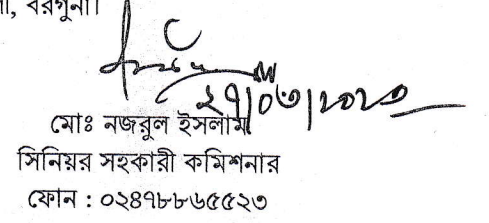 বরগুনা।
২৭/০৩/২০২৩
মোঃ নজরুল ইসলাম
সিনিয়র সহকারী কমিশনার
ফোন : ০২৪৭৮৮৬৫৫২৩